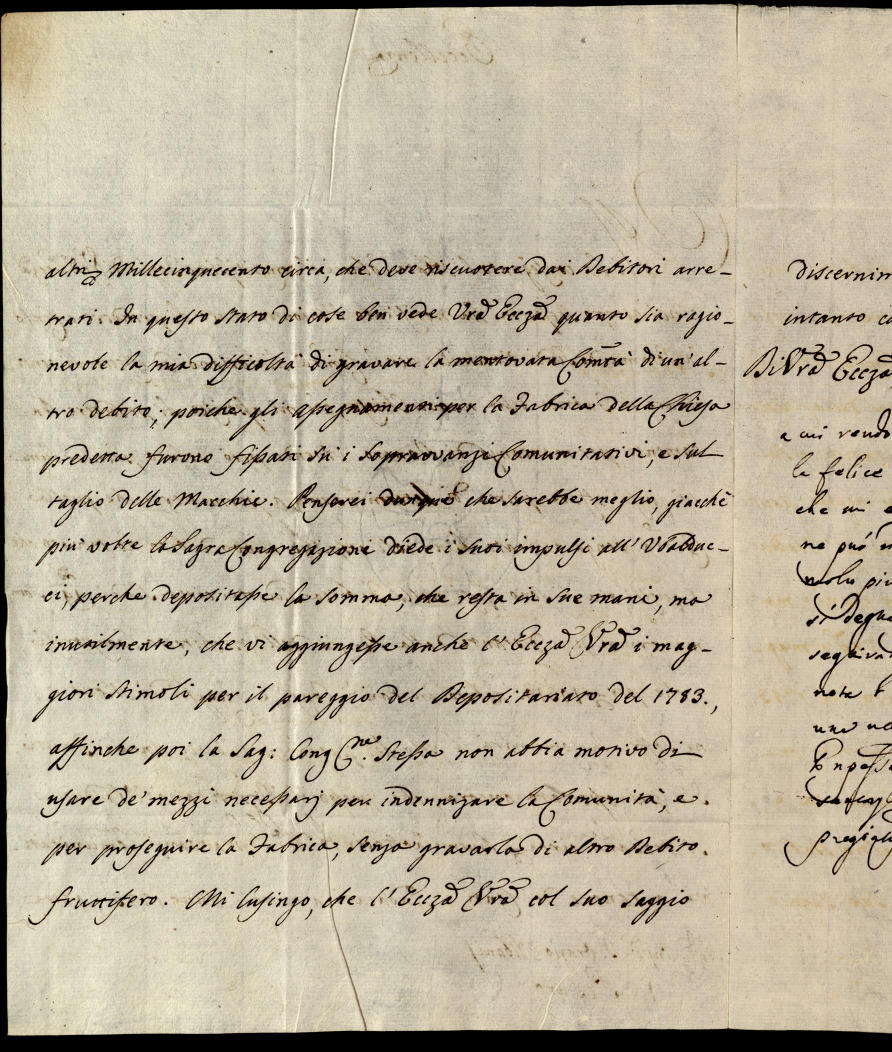 altri Millecinquecento circa, che deve riscuotere dai Debitori arre-
trati. In questo stato di cose ben vede Vrã Eccзã quanto sia ragio-
nevole la mia difficoltà di gravare la mentovata Com̃tà di un' al-
tro debito; poiche gli assegnamenti per la Fabrica della Chiesa
predetta furono fissati su i sopravvanzi Comunitativi, e sul
taglio delle Macchie. Penserei dunque che sarebbe meglio, giacchè
più volte la Sagra Congregazione diede i suoi impulsi all' Ubalduc-
ci, perche depositasse la somma, che resta in sue mani, ma
inutilmente, che vi aggiungesse anche l' Ecczã Vrã i mag-
giori stimoli per il pareggio del Depositariato del 1783.,
affinche poi la Sag: Cong.ne stessa non abbia motivo di
usare de' mezzi necessarj per indennizare la Comunità, e
per proseguire la Fabrica, senza gravarla di altro Debito
fruttifero. Mi lusingo, che l' Ecczã Vrã col suo saggio
discernim
intanto
Di Vrã Eccza
a cui rendo
la felice
che mi
ne può
molto più
si degn